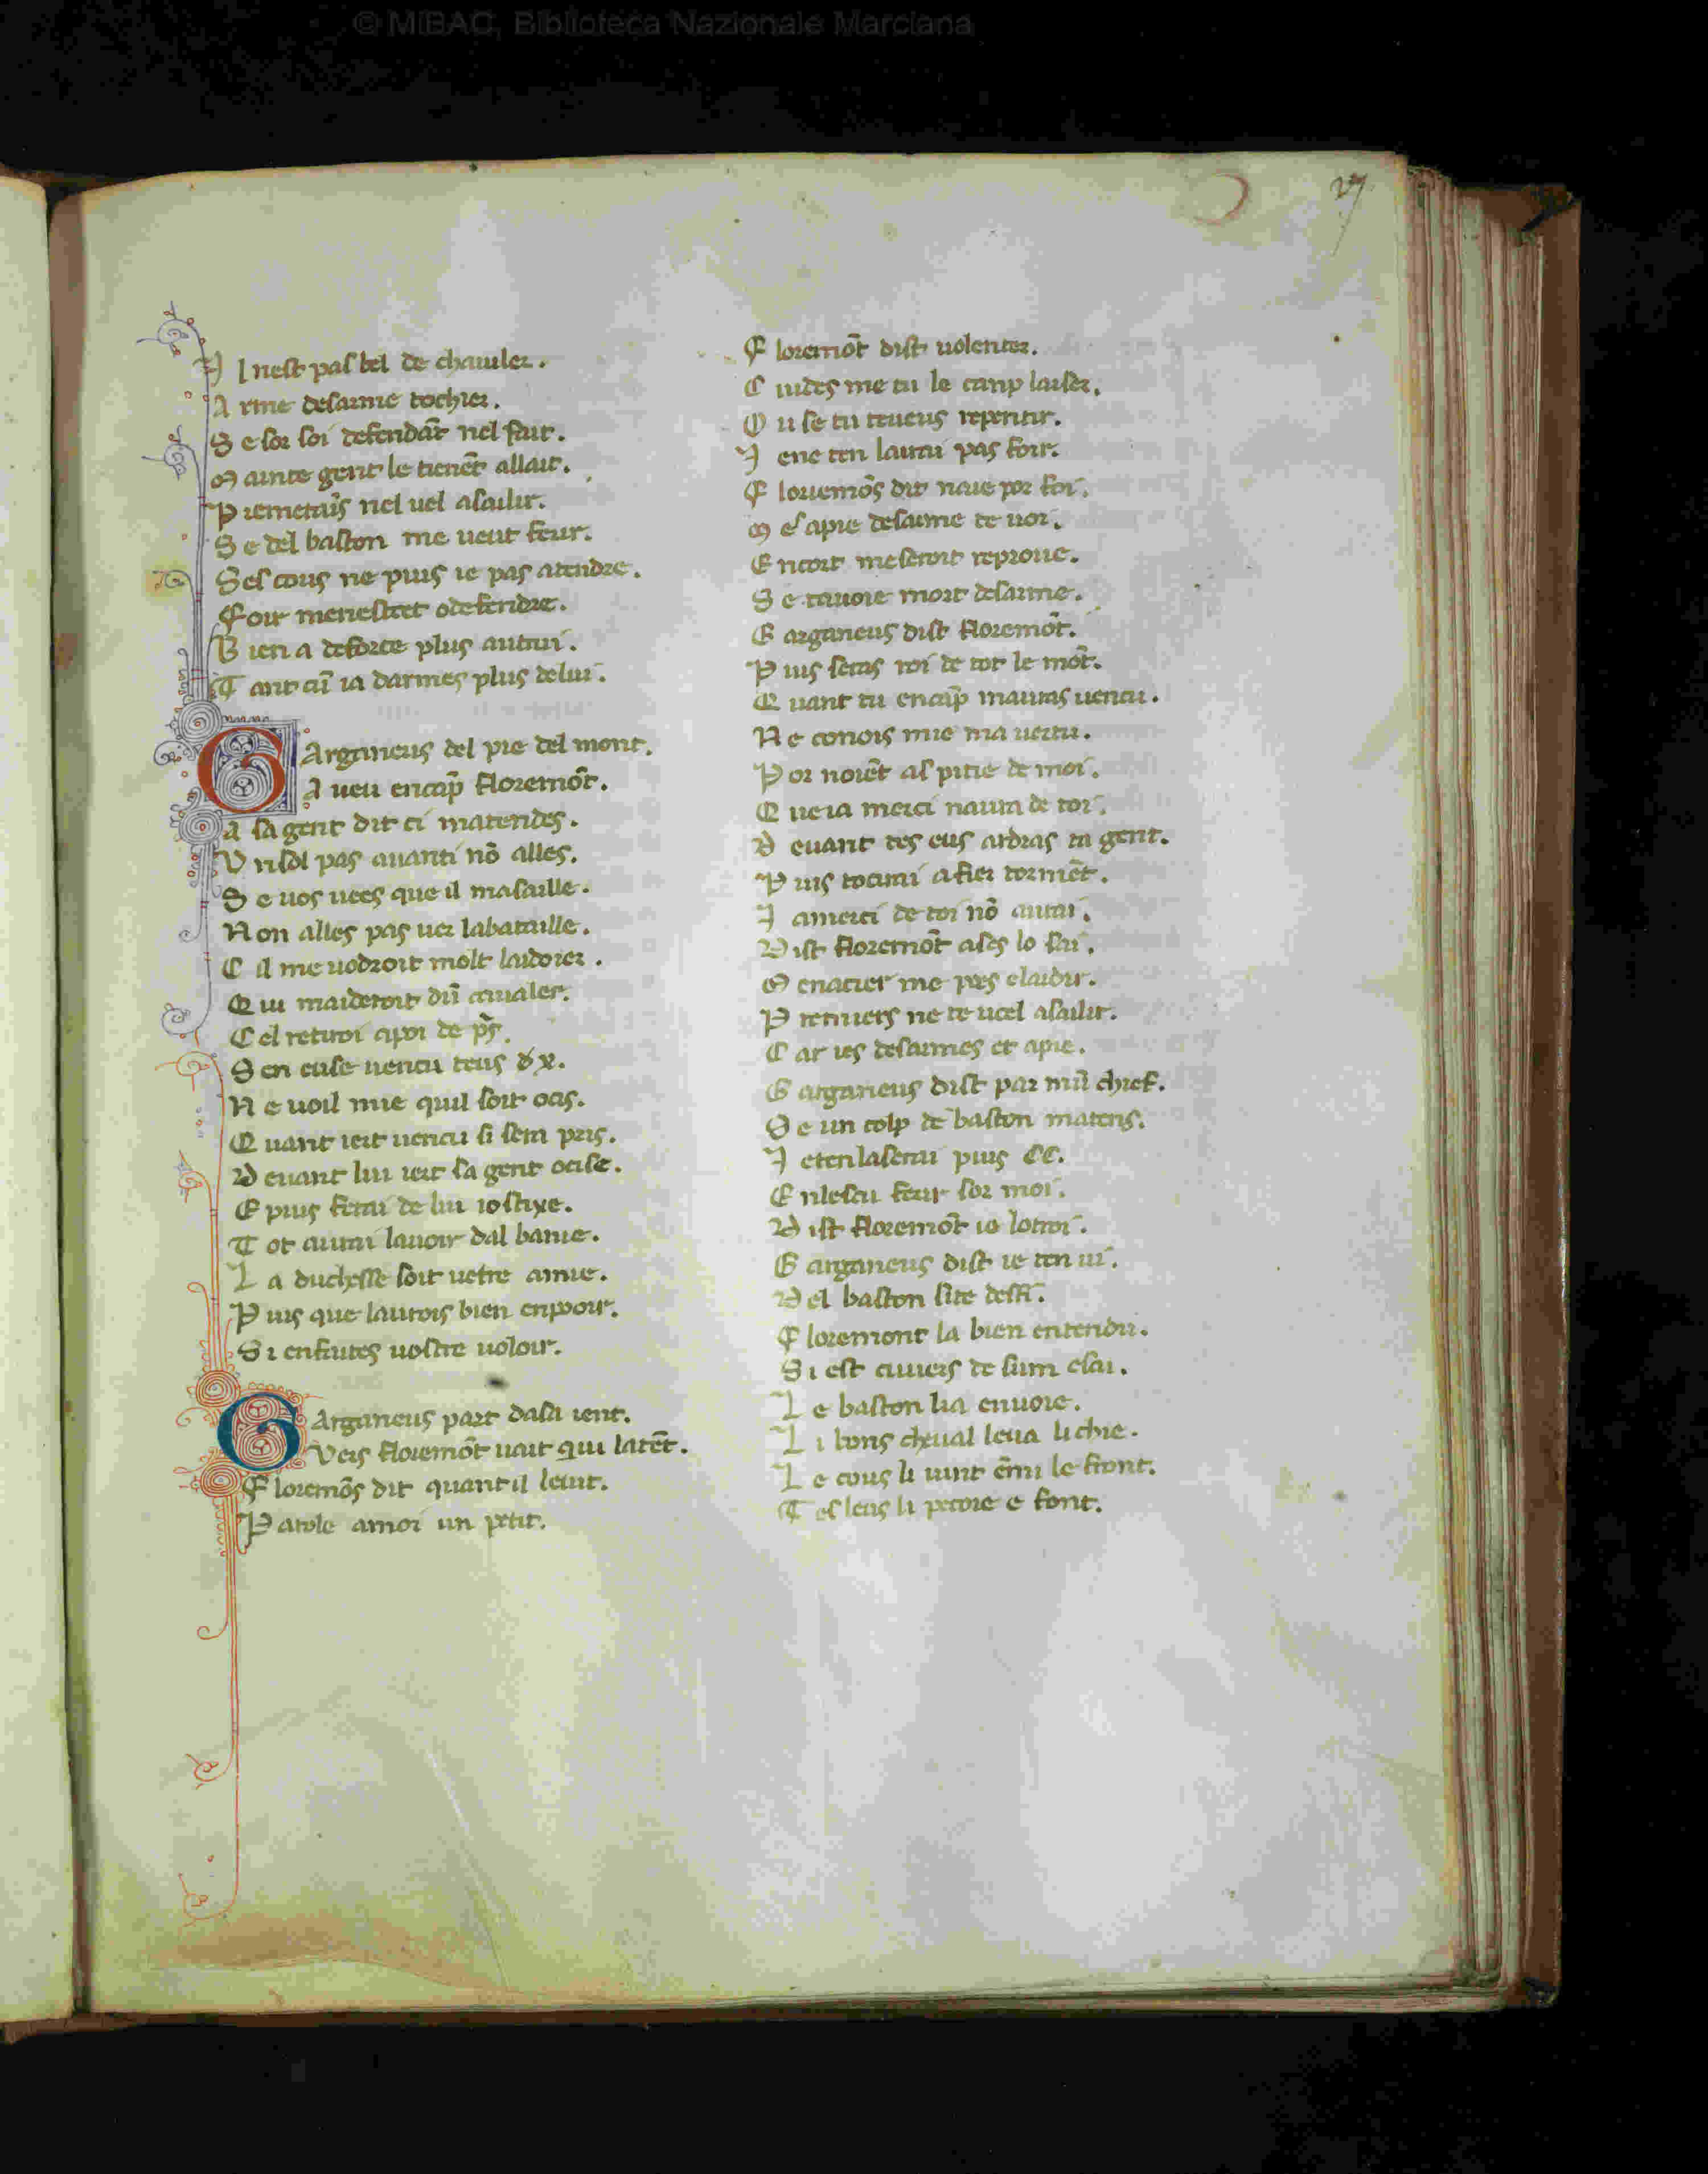 © MiBAC, Biblioteca Nazionale Marciana
27
I l nest pas bel de chaualer.
A rme desarme tochier.
S e sor soi defendāt nel fait.
M ainte gent le tienēt allait.
P remerais nel uel asailir.
S e del baston me ueut ferir.
S es cous ne puis ie pas atendre.
F oir menestuet o defendre.
B ien a de force plus autrui.
T ant cū ia darmes plus de lui.
G Arganeus del pie del mont.
A ueu encāp floremōt.
A sa gent dit ci matendes.
U nsol pas auanti nō alles.
S e uos uees que il masaille.
N on alles pas uer labataille.
C il me uodroit molt laidoier.
Q ui maideroit dū ceualer.
C el retiroi apoi de p̄s.
S en euse uencu teus d x.
N e uoil mie quil soit ocis.
Q uant iert uencu si sera pris.
D euant lui iert sa gent ocise.
E puis ferai de lui iostixe.
T ot aurai lauoir dal banie.
L a duchesse soit uetre amie.
P uis que laurois bien enpooir.
S i enfaites uostre uoloir.
G Arganeus part dasa ient.
Vers floremōt uait qui latēt.
F loremōs dit quant il leuit.
P arole amoi un petit.
F loremōt dist uolenter.
C uides me tu le canp laiser.
O u se tu teueus repentir.
I ene ten lairai pas foir.
F loremōs dit naie por foi.
M es apie desarme te uoi.
E ncort me seroit reproue.
S e tauoie mort desarme.
G arganeus dist floremōt.
P uis seras roi de tot le mōt.
Q uant tu encāp mauras uencu.
N e conois mie ma uertu.
P or noiēt as pitie de moi.
Q ue ia merci naura de toi.
D euant tes eus ardras ta gent.
P uis tocirai a fier tormēt.
I amerci de toi nō aurai.
D ist floremōt ases lo sai.
M enacier me pues elaidir.
P remiers ne te ueel asailir.
C ar ies desarmes et apie.
G arganeus dist par mū chief.
S e un colp de baston matens.
I eten laserai puis CC.
E nlescu ferir sor moi.
D ist floremōt io lotroi.
G arganeus dist ie ten ui.
D el baston site deffi.
F loremont la bien entendu.
S i est couers de sum escu.
L e baston lia enuoie.
L i bons cheual leua lichie.
L e cous li uint ēmi le front.
T es leus li peroie e font.